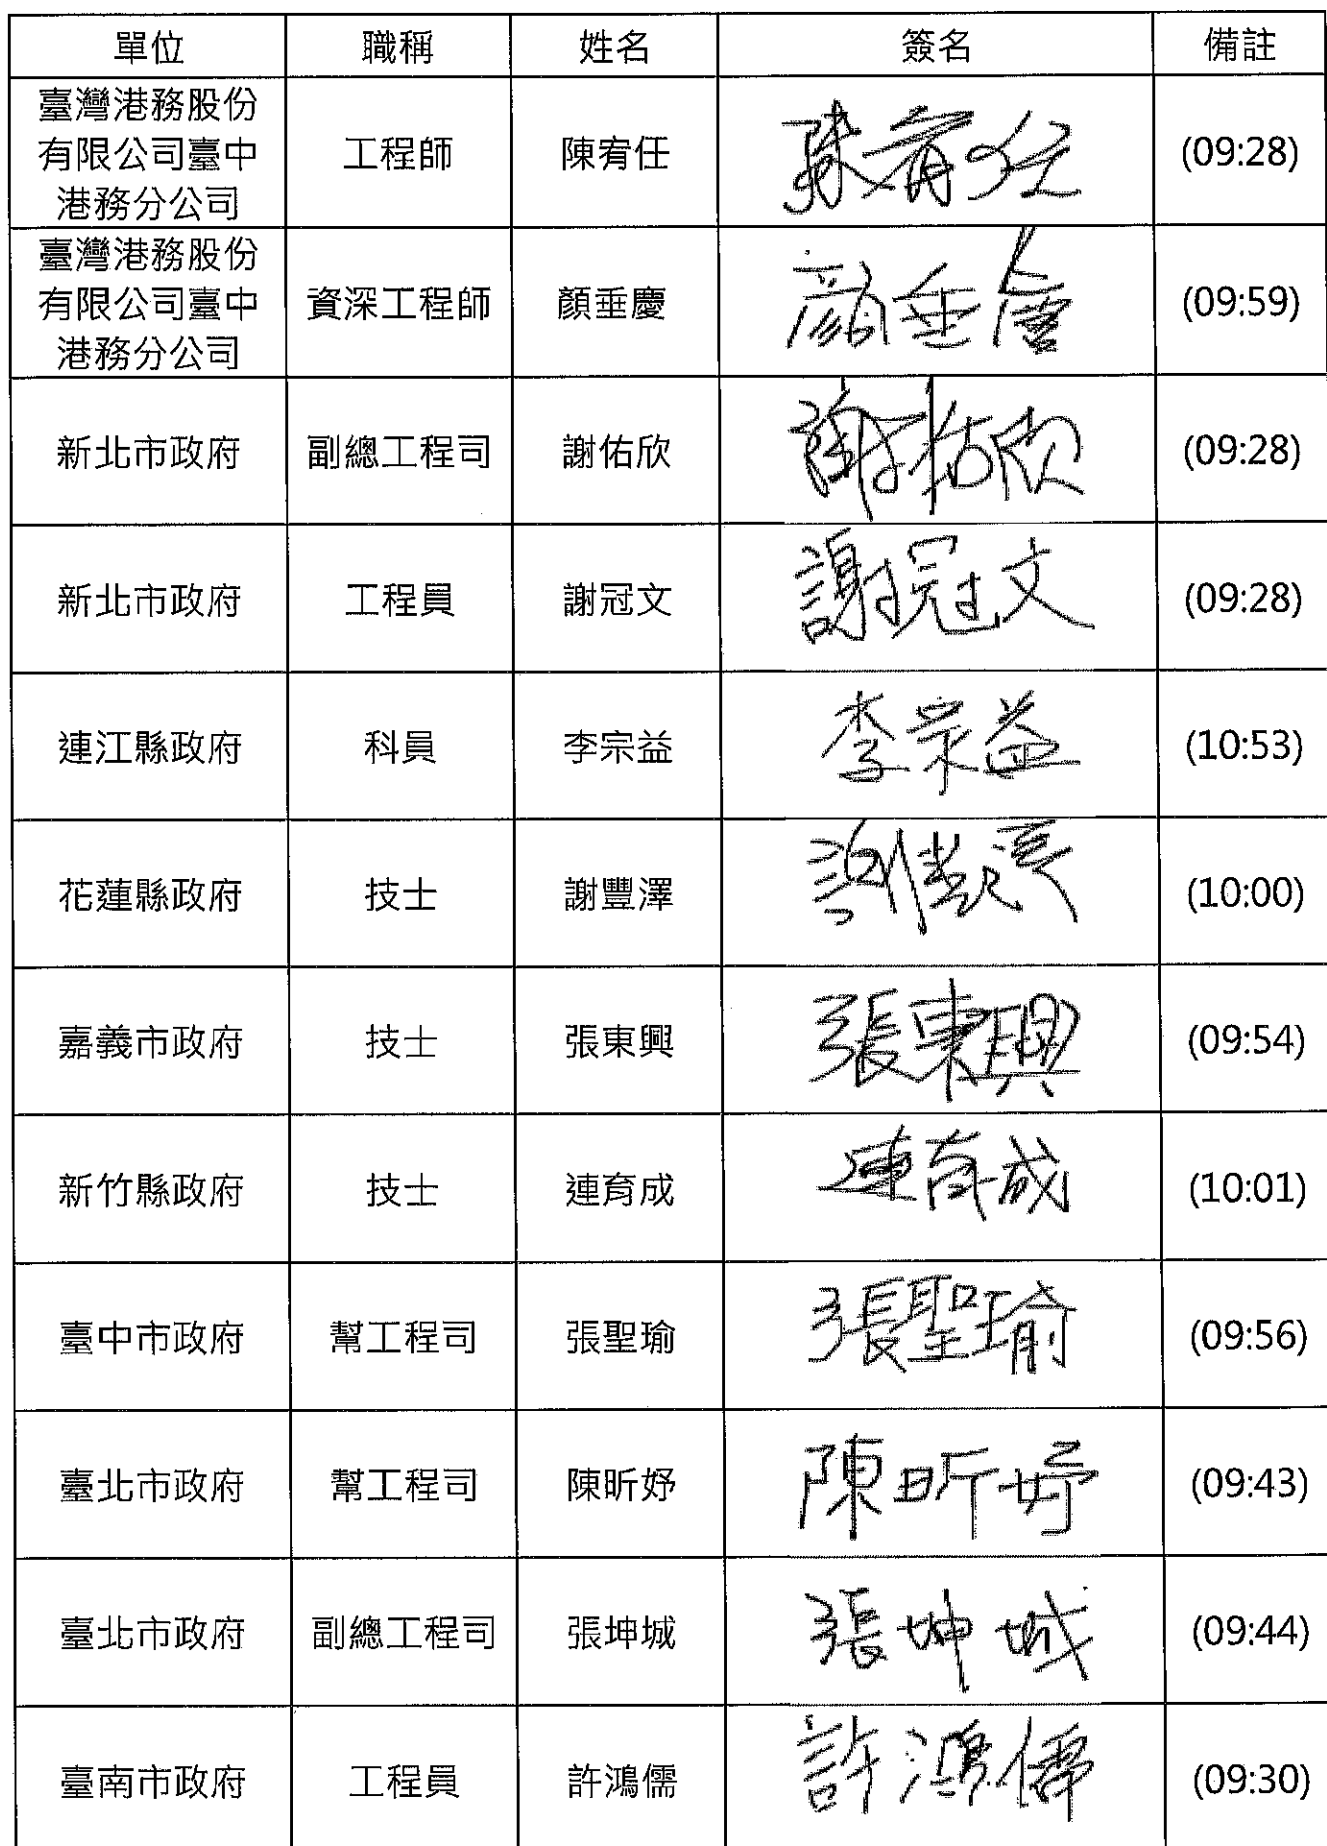 單位 職稱 姓名 簽名 備註
臺灣港務股份
有限公司臺中 工程師 陳宥任 陳宥任 (09:28)
港務分公司
臺灣港務股份
有限公司臺中 資深工程師 顏垂慶 顏垂慶 (09:59)
港務分公司
新北市政府 副總工程司 謝佑欣 謝佑欣 (09:28)
新北市政府 工程員 謝冠文 謝冠文 (09:28)
連江縣政府 科員 李宗益 李宗益 (10:53)
花蓮縣政府 技士 謝豐澤 謝豐澤 (10:00)
嘉義市政府 技士 張東興 張東興 (09:54)
新竹縣政府 技士 連育成 連育成 (10:01)
臺中市政府 幫工程司 張聖瑜 張聖瑜 (09:56)
臺北市政府 幫工程司 陳昕妤 陳昕妤 (09:43)
臺北市政府 副總工程司 張坤城 張坤城 (09:44)
臺南市政府 工程員 許鴻儒 許鴻儒 (09:30)